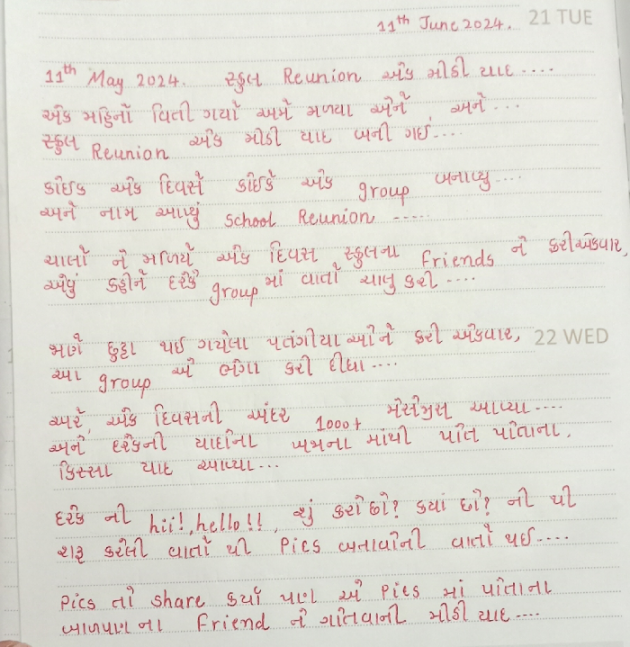 11th June 2024. 21 TUE
11th May 2024. સ્કુલ Reunion એક મીઠી યાદ ....
એક મહિનો વિતી ગયો અમે મળયા એને, અને...
સ્કુલ Reunion એક મીઠી યાદ બની ગઈ....
કોઈક એક દિવસે કોઈકે એક group બનાવ્યુ....
અને નામ આપ્યું School Reunion .....
ચાલો ને મળિયે એક દિવસ સ્કુલના Friends ને ફરીએકવાર,
એવું કહીને દરેકે group માં વાતો ચાલુ કરી ....
જાણે છુટ્ટા થઈ ગયેલા પતંગીયા ઓને ફરી એકવાર, 22 WED
આ group એ ભેગા કરી દીધા....
અરે, એક દિવસની અંદર 1000+ મેસેજીસ આપ્યા....
અને દરેકની યાદોના ખજના માંથી પોત પોતાના,
કિસ્સા યાદ આપ્યા...
દરેક ની hii!, hello!!, શું કરોછો? કયાં છો? ની થી
શરૂ કરેલી વાતો થી Pics બતાવોની વાતો થઈ....
Pics તો share કર્યા પણ એ Pics માં પોતાના
બાળપણ ના Friend ને ગોતવાની મીઠી યાદ....